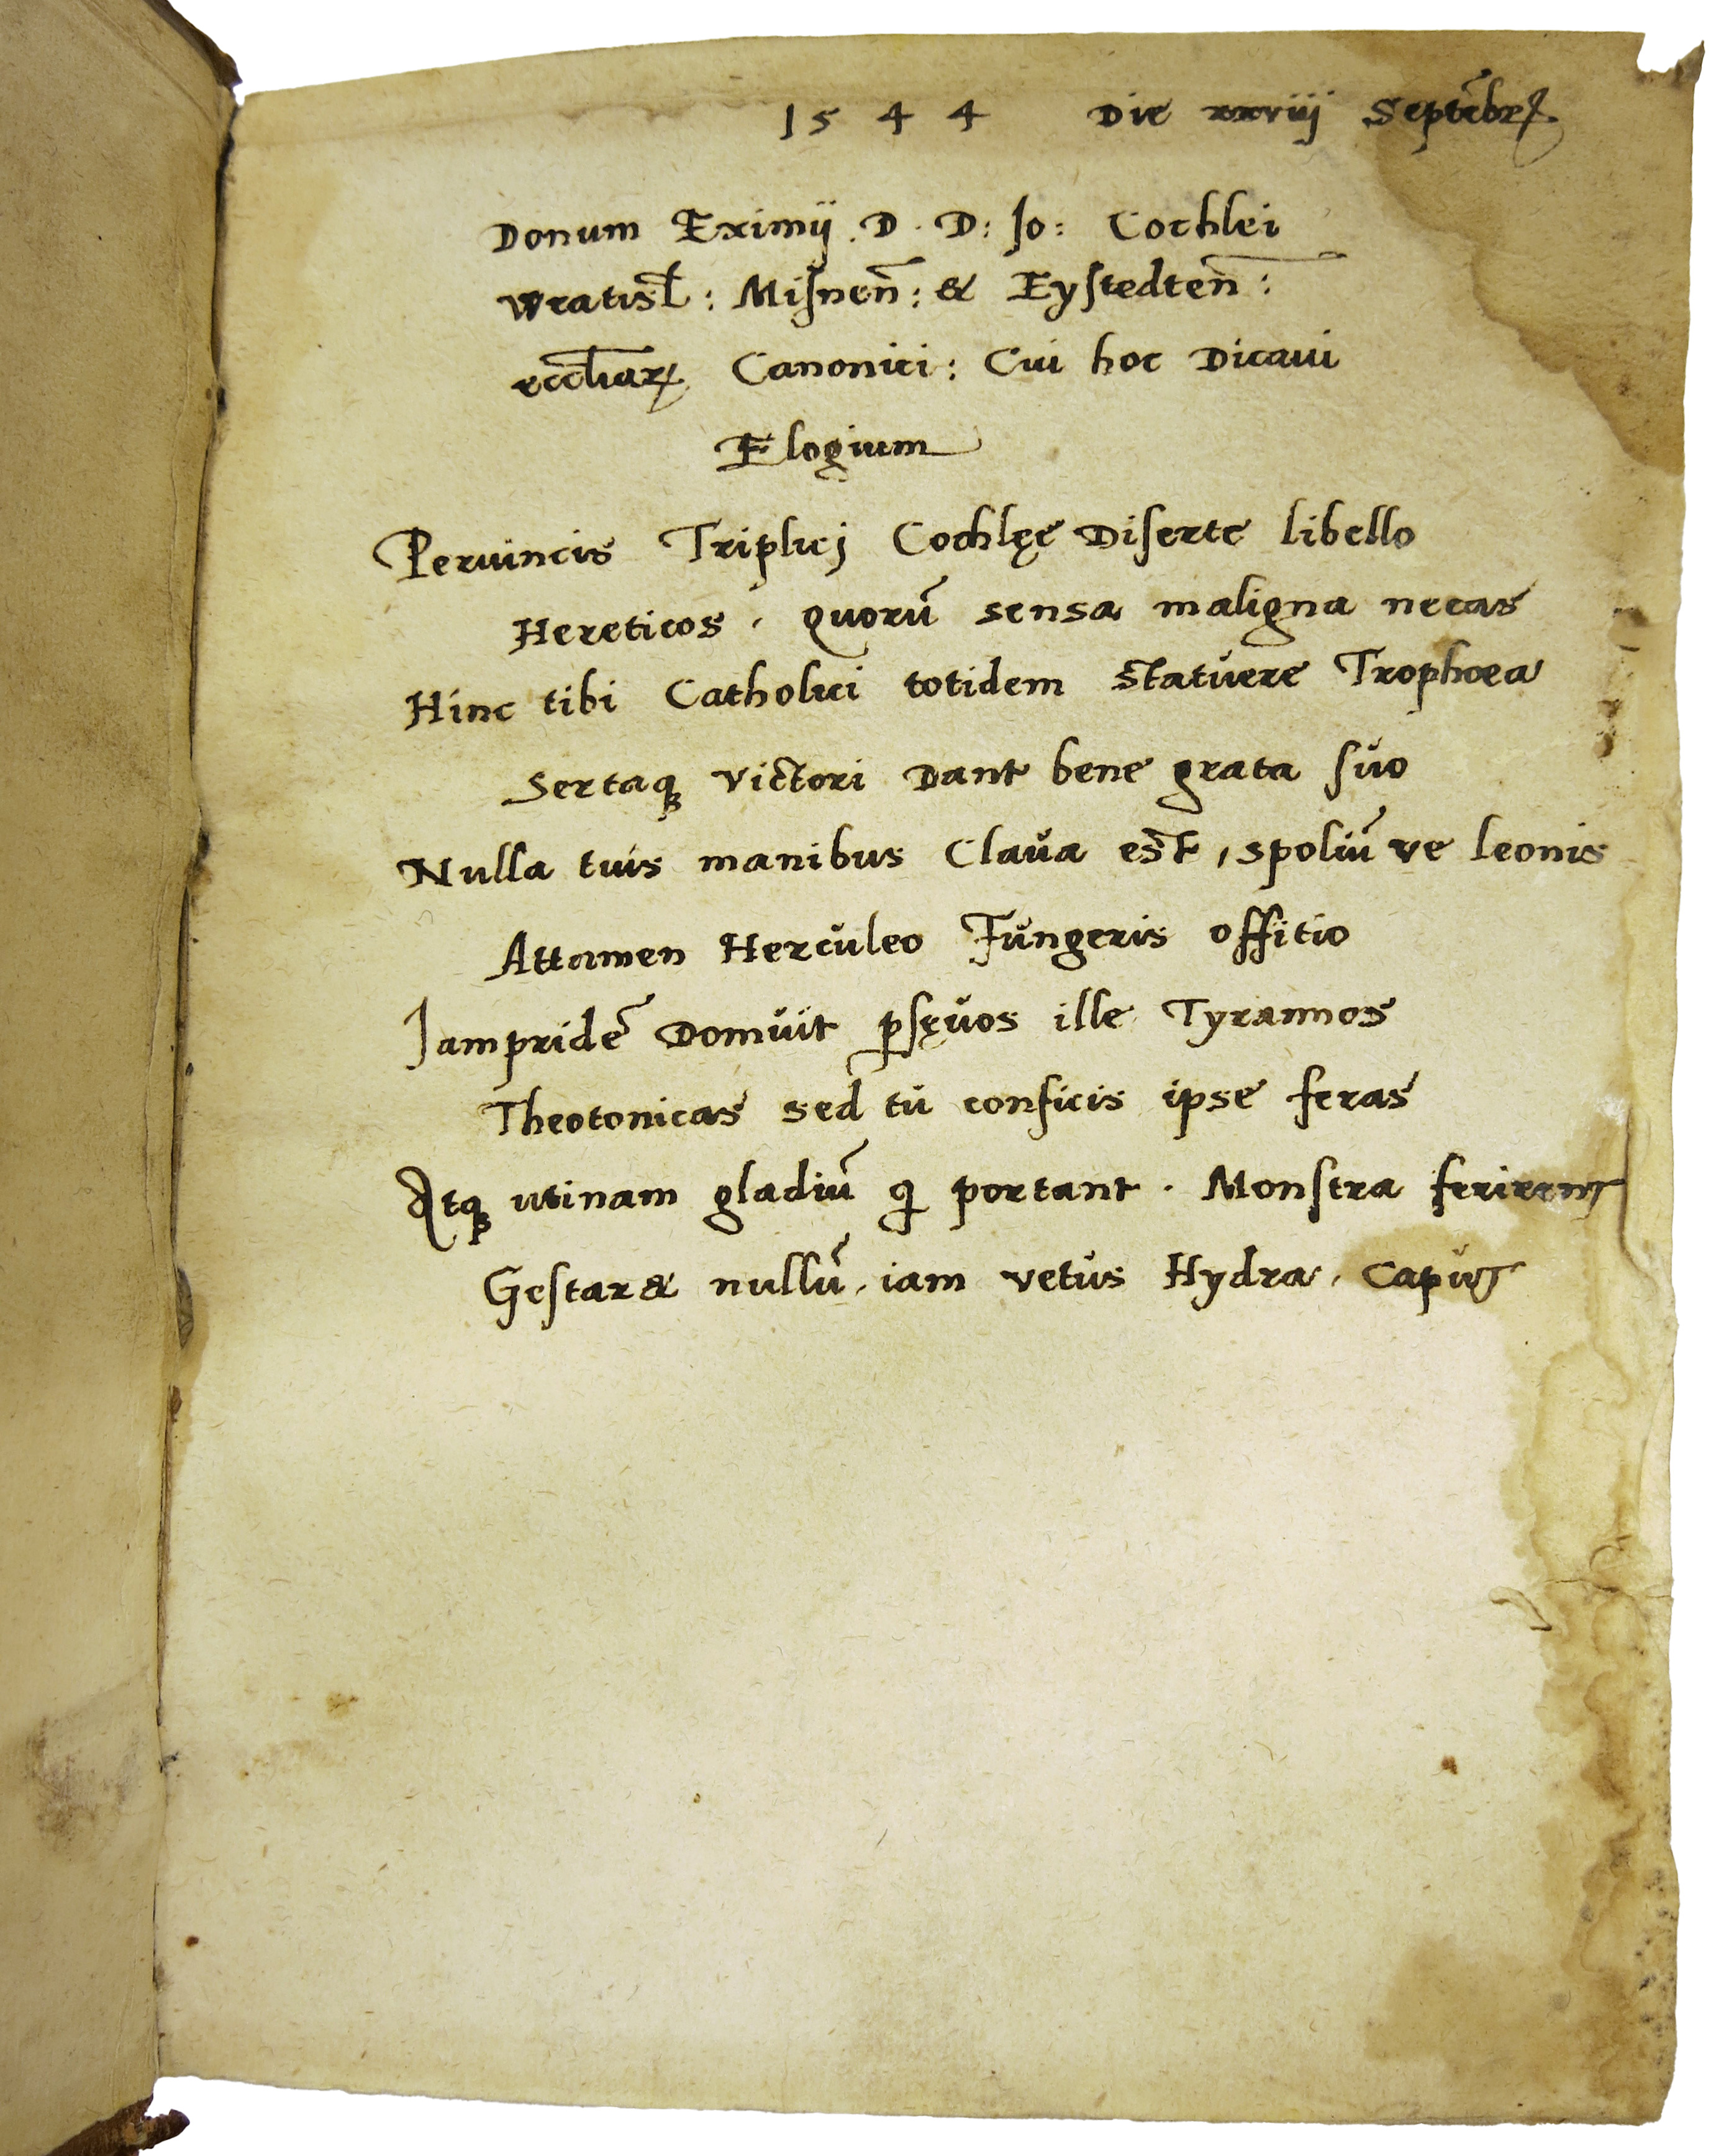 1544 Die xxviij Septẽbrꝭ
Donum Eximij . D . D : Io : Cochlei
Wratisł : Misnen̄ : & Eyſtedten̄ :
eccl̄iaꝝ Canonici : Cui hoc Dicaui
Elogium
Peruincis Triplicj Cochlęe Diſerte libello
Hereticos , quorũ sensa maligna necas
Hinc tibi Catholici totidem statuere Trophœa
Sertaqꝫ victori Dant bene grata ſuo
Nulla tuis manibus Claua est , spoliũ ve leonis
Attamen Herculeo Fungeris offitio
Iampridẽ Domuit ꝑſęuos ille Tyrannos
Theotonicas sed tu conficis ipse feras
Atqꝫ utinam gladiũ qi portant . Monſtra ferirent
Geſtar& nullũ , iam vetus Hydra , Caput